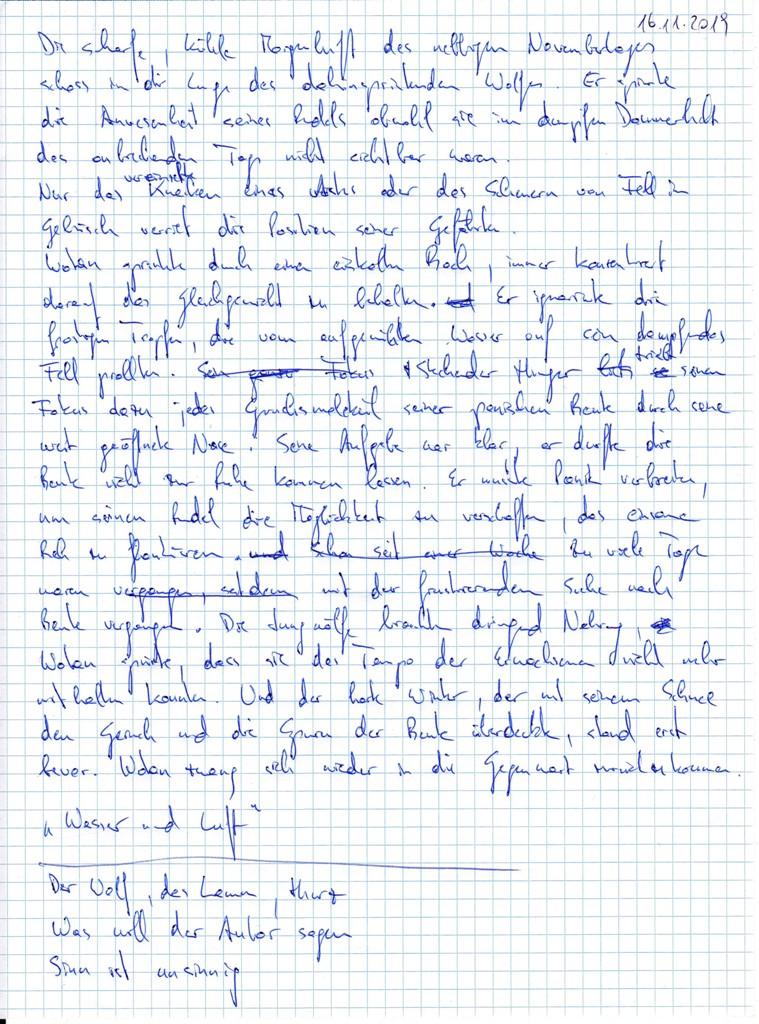 16.11.2019
Die scharfe, kühle Morgenluft des nebligen Novembertages
schoss in die Lunge des dahinsprintenden Wolfes. Er spürte
die Anwesenheit seines Rudels obwohl sie im dumpfen Dämmerlicht
des anbrechenden Tags nicht sichtbar waren.
Nur das vereinzelte Knacken eines Asts oder das Scheuern von Fell im
Gebüsch verriet die Position seiner Gefährten.
Wotan sprintete durch einen eiskalten Bach, immer konzentriert
darauf das Gleichgewicht zu behalten. Er ignorierte die
frostigen Tropfen, die vom aufgewühlten Wasser auf sein dampfendes
Fell prallten. Stechender Hunger trieb seinen
Fokus dazu jedes Geruchsmolekül seiner panischen Beute durch seine
weit geöffnete Nase. Seine Aufgabe war klar, er durfte die
Beute nicht zur Ruhe kommen lassen. Er musste Panik verbreiten,
um seinem Rudel die Möglichkeit zu verschaffen, das einsame
Reh zu flankieren. und schon seit einer Woche Zu viele Tage
waren vergangen, seitdem mit der frustrierenden Suche nach
Beute vergangen. Die Jungwölfe brauchten dringend Nahrung,
Wotan spürte, dass sie das Tempo der Erwachsenen nicht mehr
mithalten konnten. Und der harte Winter, der mit seinem Schnee
den Geruch und die Spuren der Beute überdeckte, stand erst
bevor. Wotan zwang sich wieder in die Gegenwart zurückzukommen.
"Wasser und Luft"
Der Wolf, das Lamm, Hurz
Was will der Autor sagen
Sinn ist unsinnig